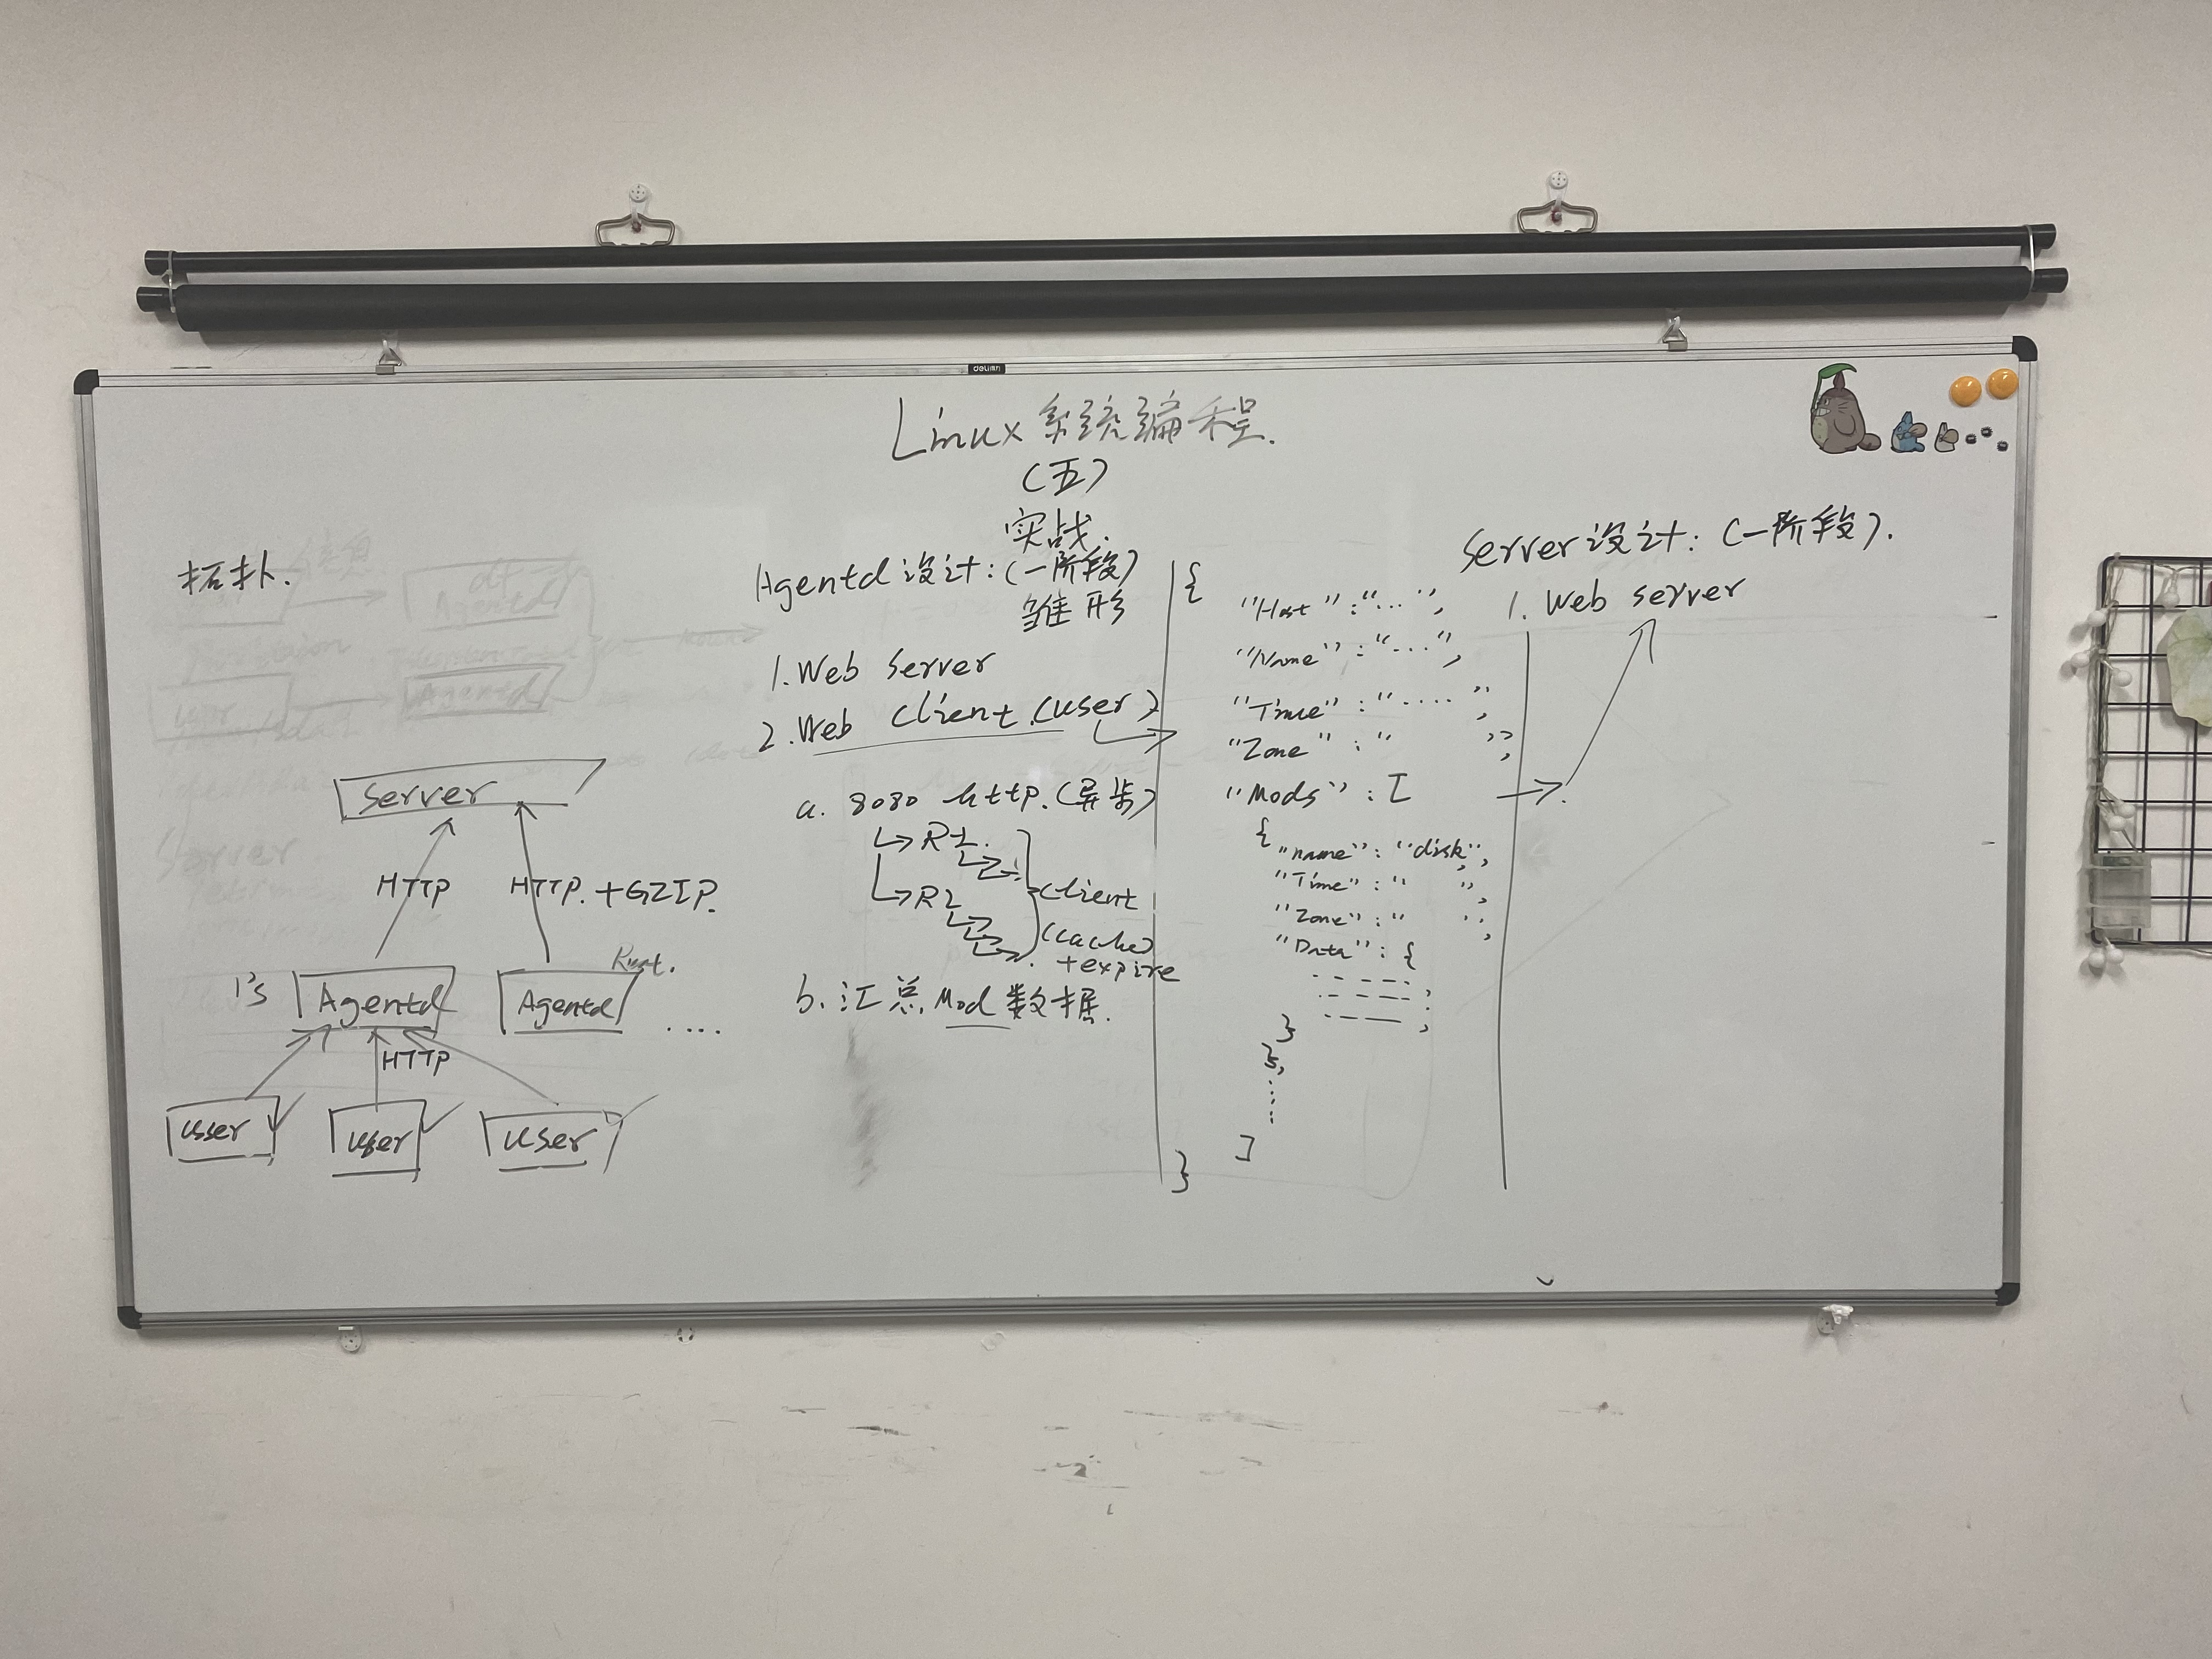 Linux 系统编程.
(五)
实战.
拓扑.
Server
HTTP
HTTP. +GZIP.
Rust.
1's
Agentd
Agentd
....
HTTP
user
user
user
Agentd 设计: (一阶段)
雏形
1. Web Server
2. Web Client. (user)
a. 8080 http. (异步)
R1.
R2
Client
(cache)
+expire
b. 汇总 Mod 数据.
{
"Host" : "...",
"Name" : "...",
"Time" : "....",
"Zone" : " ",
"Mods" : [
{
"name" : "disk",
"Time" : " ",
"Zone" : " ",
"Data" : {
- - - -
- - - - ,
- - - - ,
}
},
.....
]
}
Server 设计: (一阶段).
1. Web server
deli